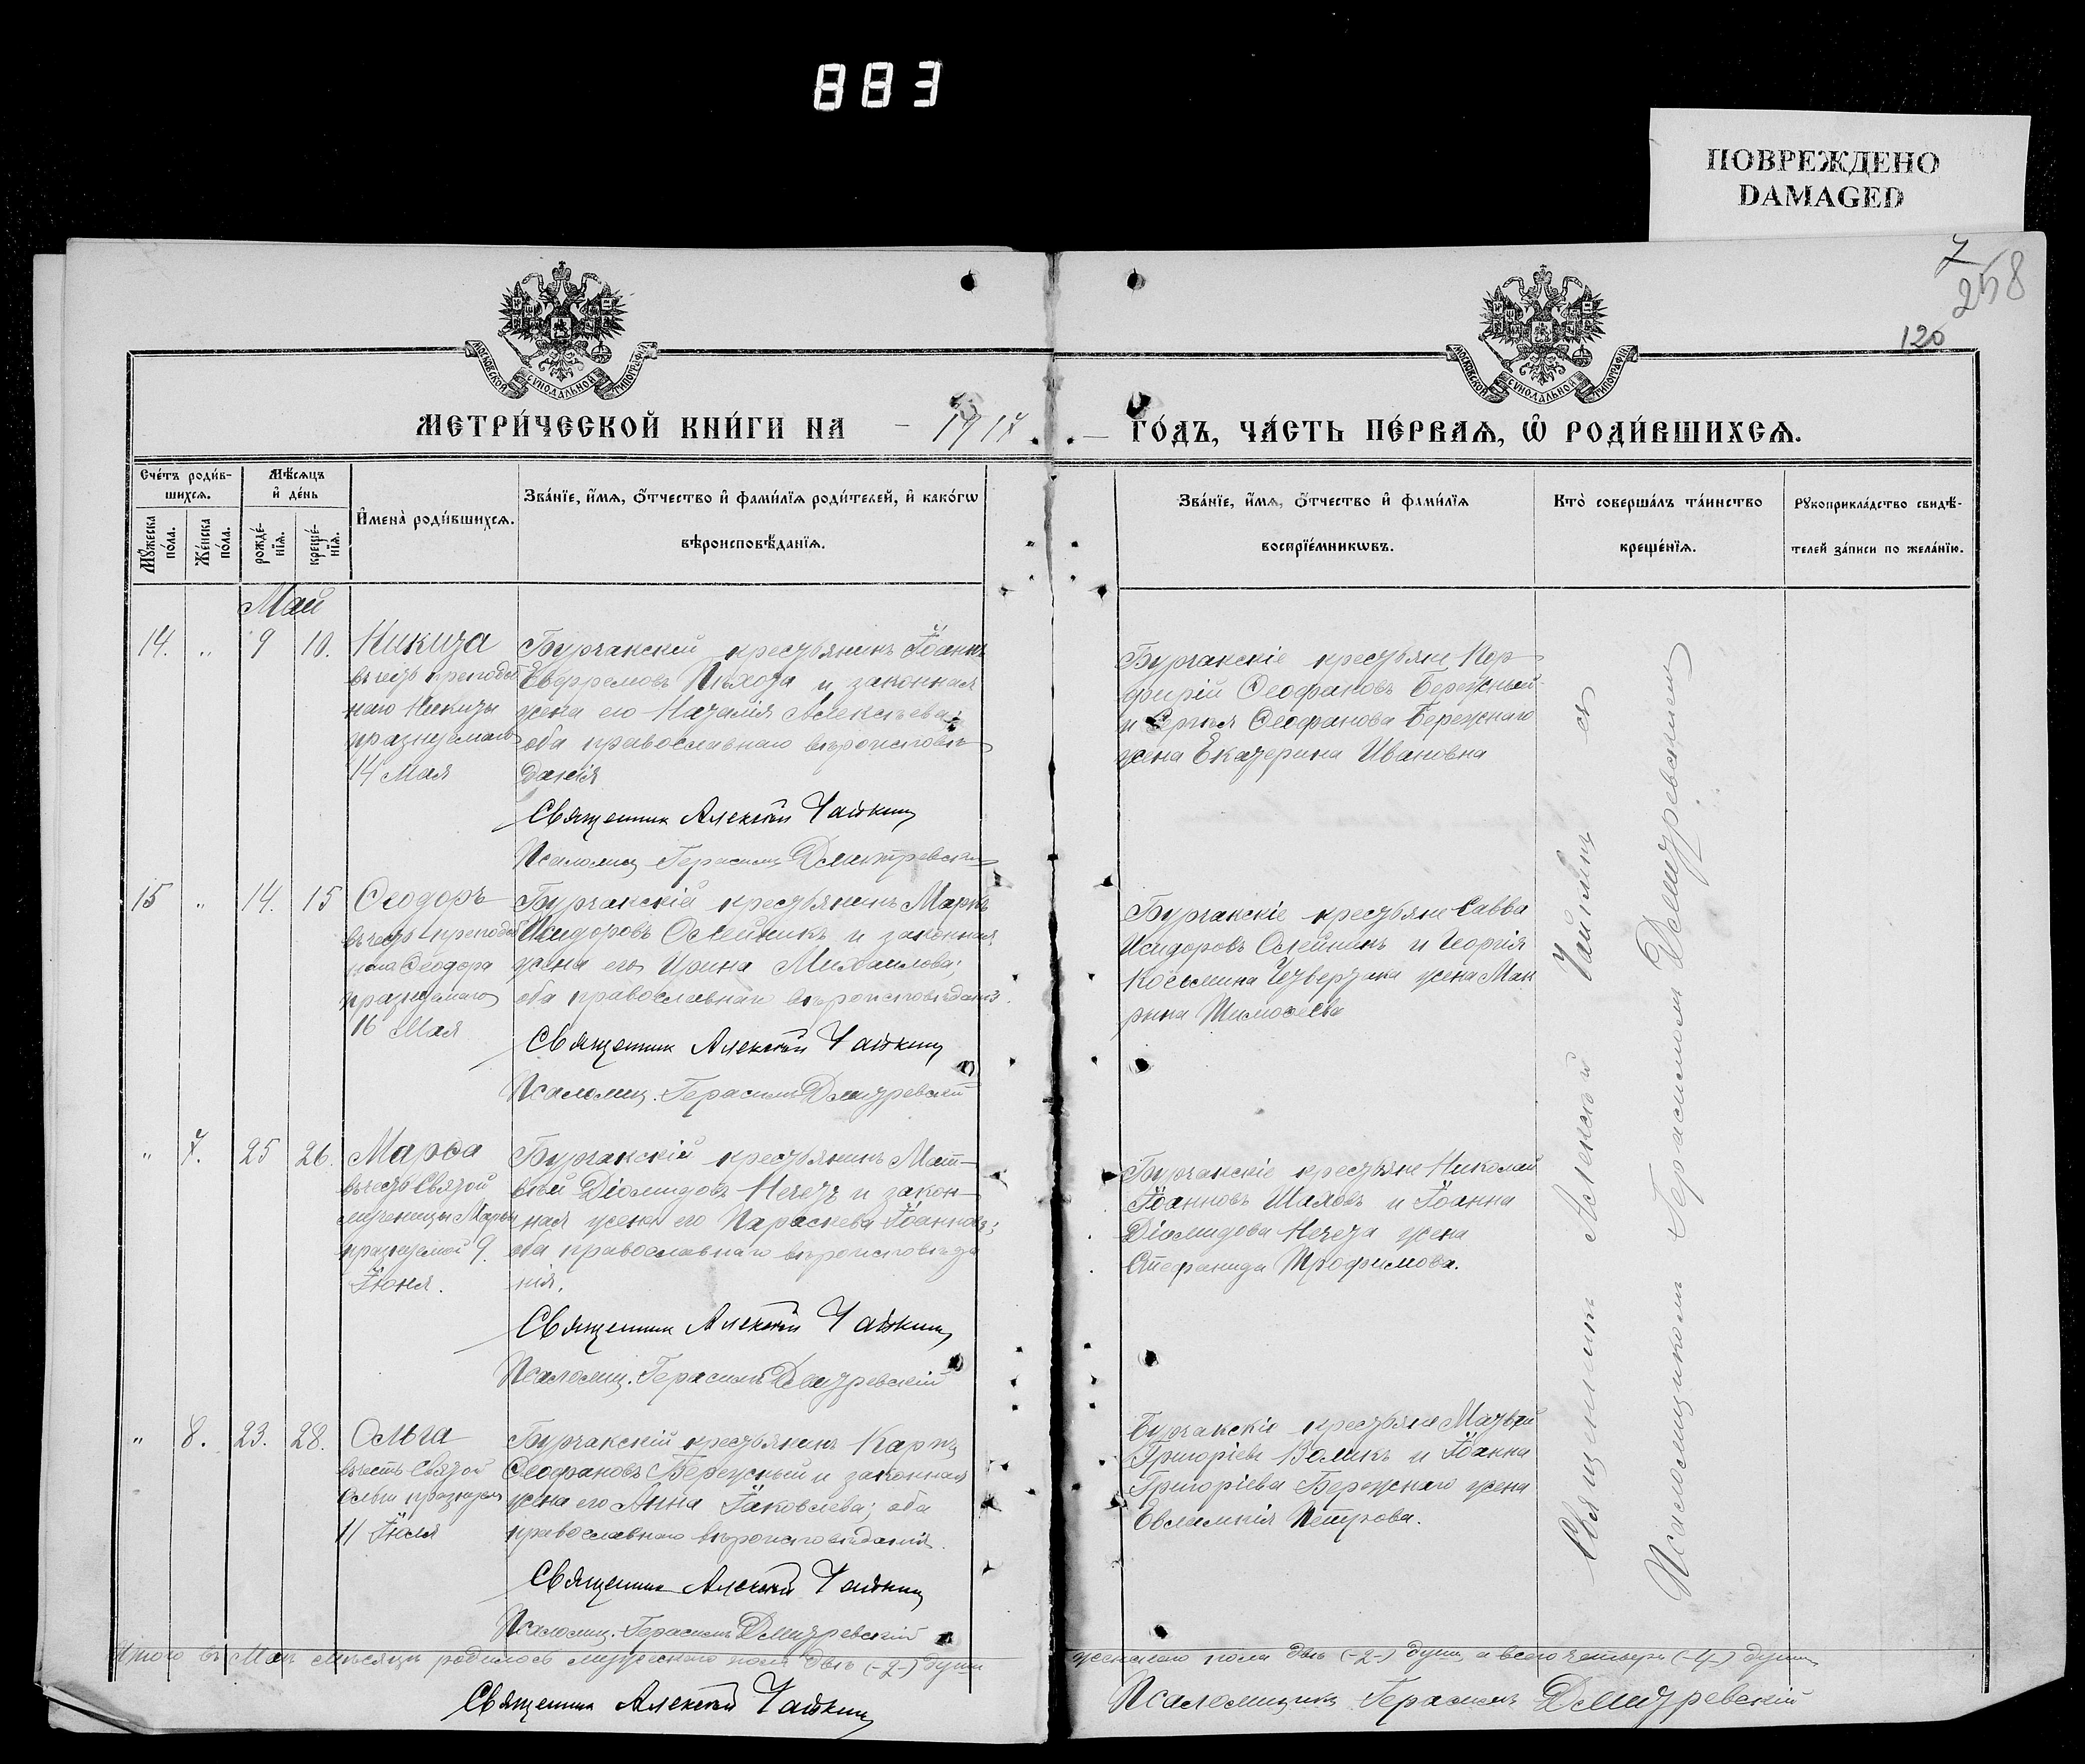 883
ПОВРЕЖДЕНО
DAMAGED
7
258
120
МОСКОВСКОЙ СѴНОДАЛЬНОЙ ТИПОГРАФІИ
МОСКОВСКОЙ СѴНОДАЛЬНОЙ ТИПОГРАФІИ
МЕТРИ́ЧЕСКОЙ КНИ́ГИ НА – 1917 – ГО́ДЪ, ЧА́СТЬ ПЕ́РВАѦ, Ѡ РОДИ́ВШИХСѦ.
Сче́тъ роди́в-
шихсѧ.
Мꙋ́жеска по́ла.
Же́нска по́ла.
Мѣ́сѧцъ
и҆ де́нь
рожде́-
нїѧ.
креще́-
нїѧ.
И҆мена̀ роди́вшихсѧ.
Зва́нїе, и҆́мѧ, ѻ҆́тчество и҆ фами́лїѧ роди́телей, и҆ како́гѡ
вѣроисповѣ́данїѧ.
Зва́нїе, и҆́мѧ, ѻ҆́тчество и҆ фами́лїѧ
воспрїе́мникѡвъ.
Кто̀ соверша́лъ та́инство
креще́нїѧ.
Рꙋкоприкла́дство свидѣ́-
телей за́писи по жела́нїю.
Май
14. „ 9 10. Никита
въ честь преподоб
наго Никиты
празнуемаго
14 Мая
Бурчакскій крестьянинъ Іоаннъ
Евфремовъ Пѣхота и законная
жена его Наталія Алексѣева;
оба православнаго вѣроисповѣ-
данія
Священник Алексѣй Чайкин
Псаломщ. Герасимъ Дмитревскій
Бурчакскіе крестьяне Пор-
фирій Ѳеофановъ Бережный
и Сергѣя Ѳеофанова Бережнаго
жена Екатерина Ивановна
15 „ 14. 15 Ѳеодоръ
въ честь преподоб
наго Ѳеодора
празнуемаго
16 Мая
Бурчакскій крестьянинъ Маркъ
Исидоровъ Олейникъ и законная
жена его Ирина Михаилова;
оба православнаго вѣроисповѣданія.
Священник Алексѣй Чайкин
Псаломщ. Герасимъ Дмитревскій
Бурчакскіе крестьяне Савва
Исидоровъ Олейникъ и Георгія
Косьмина Четвертака жена Мав
рина Тимоѳеева
„ 7. 25 26. Марѳа
въ честь Святой
мученицы Марѳы
празнуемой 9.
Іюня.
Бурчакскій крестьянинъ Мат-
вѣй Діомидовъ Нечета и закон-
ная жена его Параскева Іоаннова;
оба православнаго вѣроисповѣда
нія.
Священник Алексѣй Чайкин
Псаломщ. Герасимъ Дмитревскій
Бурчакскіе крестьяне Николай
Іоанновъ Шаховъ и Іоанна
Діомидова Нечета жена
Стефанида Трофимова.
„ 8. 23. 28. Ольга
въ честь Святой
Ольги празнуем
11 Іюля
Бурчакскій крестьянинъ Карпъ
Ѳеофановъ Бережный и законная
жена его Анна Іаковлева; оба
православнаго вѣроисповѣданія.
Священник Алексѣй Чайкин
Псаломщ. Герасимъ Дмитревскій
Бурчакскіе крестьяне Матвѣй
Григоріевъ Великъ и Іоанна
Григоріева Бережнаго жена
Евлампія Петрова.
Священникъ Алексѣй Чайкинъ съ
Псаломщикомъ Герасимомъ Дмитревскимъ
Итого въ Маѣ мѣсяцѣ родилось мужескаго пола двѣ (-2-) души
женскаго пола двѣ (-2-) души, а всего четыре (-4-) души,
Священник Алексѣй Чайкин
Псаломщикъ Герасимъ Дмитревскій